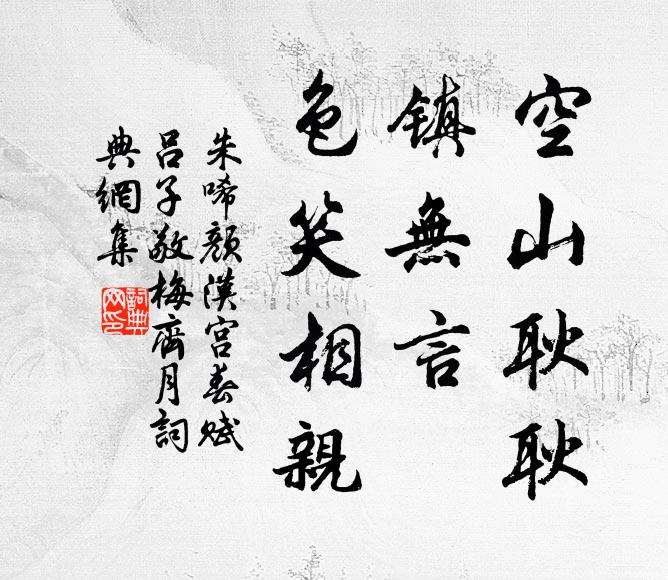 空山耿耿
镇無言
色笑相親
朱唏顔漢宫春赋
吕子敬梅齋月詞
典網集
詞典
网印